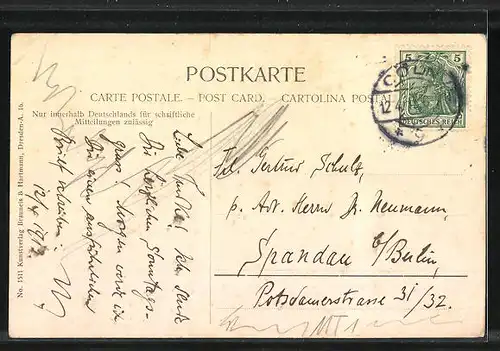 POSTKARTE
CARTE POSTALE. - POST CARD. - CARTOLINA POSTALE
Nur innerhalb Deutschlands für schriftliche
Mitteilungen zulässig
No. 1511 Kunstverlag Brauneis & Hartmann, Dresden-A. 16.
5 5
DEUTSCHES REICH
CÖLN
12.4.
* 9
Frl. Gertrud Schulz,
p. Adr. Herrn Fr. Neumann,
Spandau b/Berlin,
Potsdamerstrasse 31/32.
Dir herzlichen Sonntags-
gruss! Morgen werde ich
Dir einen ausführlichen
Brief schreiben.
12/4